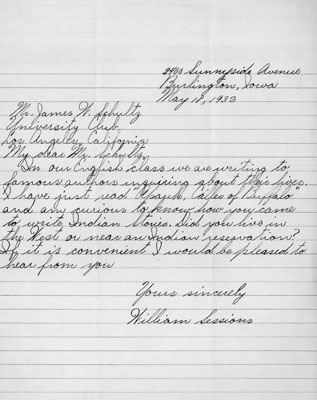 2903 Sunnyside Avenue
Burlington, Iowa
May 18, 1933
Mr. James W. Schultz
University Club,
Los Angeles, California
My dear Mr. Schultz,
In our English class we are writing to
famous authors inquiring about their lives.
I have just read "Apauk, Caller of Buffalo"
and am curious to know how you came
to write Indian Stories. Did you live in
the West or near an Indian reservation?
If it is convenient I would be pleased to
hear from you
Yours sincerely
William Sessions